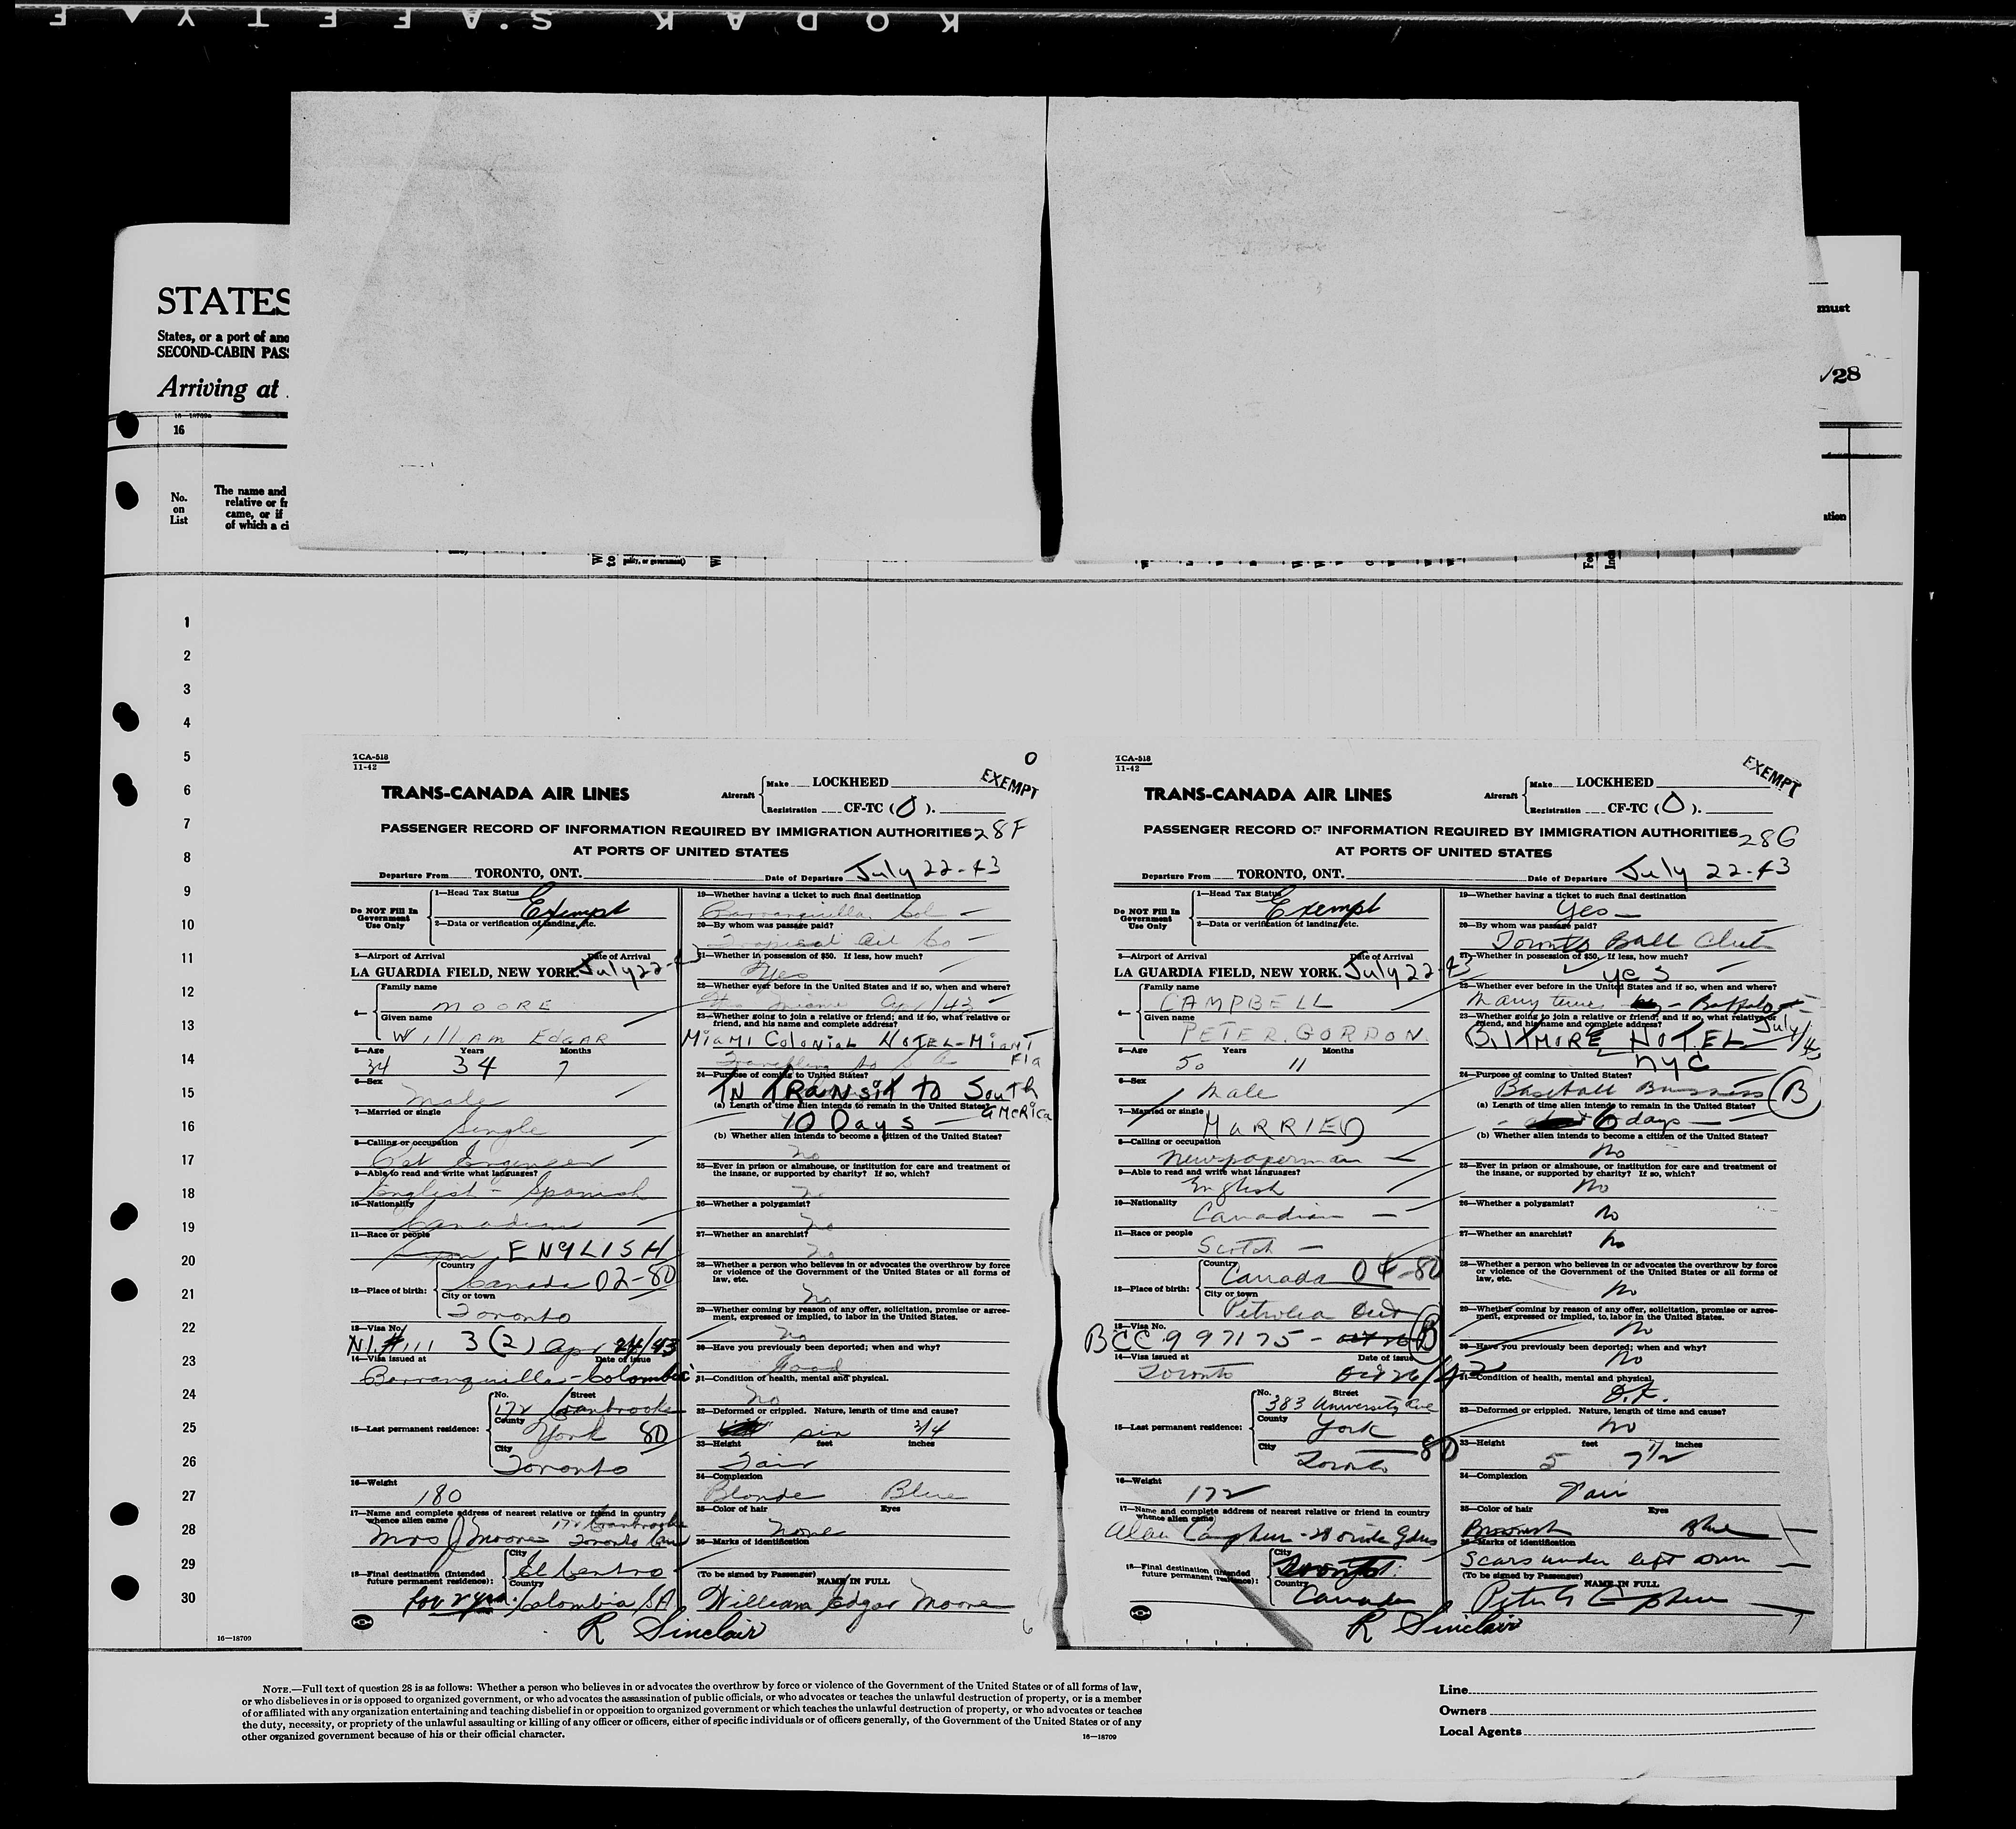 KODAK S'AFETY F
STATES
States, or a port of ano
SECOND-CABIN PAS
Arriving at
must
28
16-18709a
16
No.
on
List
The name and
relative or fr
came, or if
of which a ci
ation
pality, or government)
1
2
3
4
5
6
7
8
9
10
11
12
13
14
15
16
17
18
19
20
21
22
23
24
25
26
27
28
29
30
16-18709
TCA-518
11-42
O
EXEMPT
TRANS-CANADA AIR LINES
Aircraft
Make LOCKHEED
Registration CF-TC (O).
PASSENGER RECORD OF INFORMATION REQUIRED BY IMMIGRATION AUTHORITIES 28F
AT PORTS OF UNITED STATES
Departure From TORONTO, ONT. Date of Departure July 22-43
Do NOT Fill In
Government
Use Only
1—Head Tax Status
Exempt
2—Data or verification of landing, etc.
3—Airport of Arrival Date of Arrival
LA GUARDIA FIELD, NEW YORK. July 22-43
4—
Family name
MOORE
Given name
William EDGAR
5—Age Years Months
34 34 7
6—Sex
Male
7—Married or single
Single
8—Calling or occupation
Pet Engineer
9—Able to read and write what languages?
English - Spanish
10—Nationality
Canadian
11—Race or people
ENGLISH
12—Place of birth:
Country
Canada 02-80
City or town
Toronto
13—Visa No.
N.I. #111 3(2) Apr 24/43
14—Visa issued at Date of issue
Barranquilla - Colombia
15—Last permanent residence:
No. Street
172 Cranbrooke
County
York 80
City
Toronto
16—Weight
180
17—Name and complete address of nearest relative or friend in country
whence alien came 172 Cranbrooke
Mrs J Moore Toronto Can
18—Final destination (Intended
future permanent residence):
City
El Centro
Country
for 2 yrs. Colombia SA
19—Whether having a ticket to such final destination
Barranquilla, Col -
20—By whom was passage paid?
Tropical Oil Co -
21—Whether in possession of $50. If less, how much?
Yes
22—Whether ever before in the United States and if so, when and where?
Yes Miami Apr/43 -
23—Whether going to join a relative or friend; and if so, what relative or
friend, and his name and complete address?
MIAMI COLONIAL HOTEL-MIAMI
Fla
Travelling to
24—Purpose of coming to United States?
IN TRANSIT TO South
AMERICA
(a) Length of time alien intends to remain in the United States?
10 Days -
(b) Whether alien intends to become a citizen of the United States?
No
25—Ever in prison or almshouse, or institution for care and treatment of
the insane, or supported by charity? If so, which?
No
26—Whether a polygamist?
No
27—Whether an anarchist?
No
28—Whether a person who believes in or advocates the overthrow by force
or violence of the Government of the United States or all forms of
law, etc.
No
29—Whether coming by reason of any offer, solicitation, promise or agree-
ment, expressed or implied, to labor in the United States.
No
30—Have you previously been deported; when and why?
Good
31—Condition of health, mental and physical.
No
32—Deformed or crippled. Nature, length of time and cause?
six 3/4
33—Height feet inches
Fair
34—Complexion
Blonde Blue
35—Color of hair Eyes
None
36—Marks of identification
(To be signed by Passenger) NAME IN FULL
William Edgar Moore
R Sinclair
6
TCA-518
11-42
EXEMPT
TRANS-CANADA AIR LINES
Aircraft
Make LOCKHEED
Registration CF-TC (O).
PASSENGER RECORD OF INFORMATION REQUIRED BY IMMIGRATION AUTHORITIES 28G
AT PORTS OF UNITED STATES
Departure From TORONTO, ONT. Date of Departure July 22-43
Do NOT Fill In
Government
Use Only
1—Head Tax Status
Exempt
2—Data or verification of landing, etc.
3—Airport of Arrival Date of Arrival
LA GUARDIA FIELD, NEW YORK. July 22-43
4—
Family name
CAMPBELL
Given name
PETER. GORDON.
5—Age Years Months
50 11
6—Sex
Male
7—Married or single
MARRIED
8—Calling or occupation
Newspaperman
9—Able to read and write what languages?
English
10—Nationality
Canadian -
11—Race or people
Scotch -
12—Place of birth:
Country
Canada 04-80
City or town
Petrolea Ont
13—Visa No.
BCC 997175 - B
14—Visa issued at Date of issue
Toronto Oct 26/42
15—Last permanent residence:
No. Street
383 University Ave
County
York
City 80
Toronto
16—Weight
172
17—Name and complete address of nearest relative or friend in country
whence alien came)
18—Final destination (Intended
future permanent residence):
City
Toronto.
Country
Canada
19—Whether having a ticket to such final destination
Yes -
20—By whom was passage paid?
Toronto Ball Club
21—Whether in possession of $50. If less, how much?
yes
22—Whether ever before in the United States and if so, when and where?
Many times - Buffalo
23—Whether going to join a relative or friend, and if so, what relative or
friend, and his name and complete address? July/43
BILTMORE HOTEL
NYC
24—Purpose of coming to United States?
Baseball Business B
(a) Length of time alien intends to remain in the United States?
6 days -
(b) Whether alien intends to become a citizen of the United States?
No
25—Ever in prison or almshouse, or institution for care and treatment of
the insane, or supported by charity? If so, which?
No
26—Whether a polygamist?
No
27—Whether an anarchist?
No
28—Whether a person who believes in or advocates the overthrow by force
or violence of the Government of the United States or all forms of
law, etc.
No
29—Whether coming by reason of any offer, solicitation, promise or agree-
ment, expressed or implied, to labor in the United States.
No
30—Have you previously been deported; when and why?
No
31—Condition of health, mental and physical.
O.K.
32—Deformed or crippled. Nature, length of time and cause?
No
33—Height feet inches
5 7 1/2
34—Complexion
Fair
35—Color of hair Eyes
Brownish Blue
36—Marks of identification
Scars under left arm
(To be signed by Passenger) NAME IN FULL
Peter G Campbell
R Sinclair
7
NOTE.—Full text of question 28 is as follows: Whether a person who believes in or advocates the overthrow by force or violence of the Government of the United States or of all forms of law,
or who disbelieves in or is opposed to organized government, or who advocates the assassination of public officials, or who advocates or teaches the unlawful destruction of property, or is a member
of or affiliated with any organization entertaining and teaching disbelief in or opposition to organized government or which teaches the unlawful destruction of property, or who advocates or teaches
the duty, necessity, or propriety of the unlawful assaulting or killing of any officer or officers, either of specific individuals or of officers generally, of the Government of the United States or of any
other organized government because of his or their official character.
16-18709
Line
Owners
Local Agents